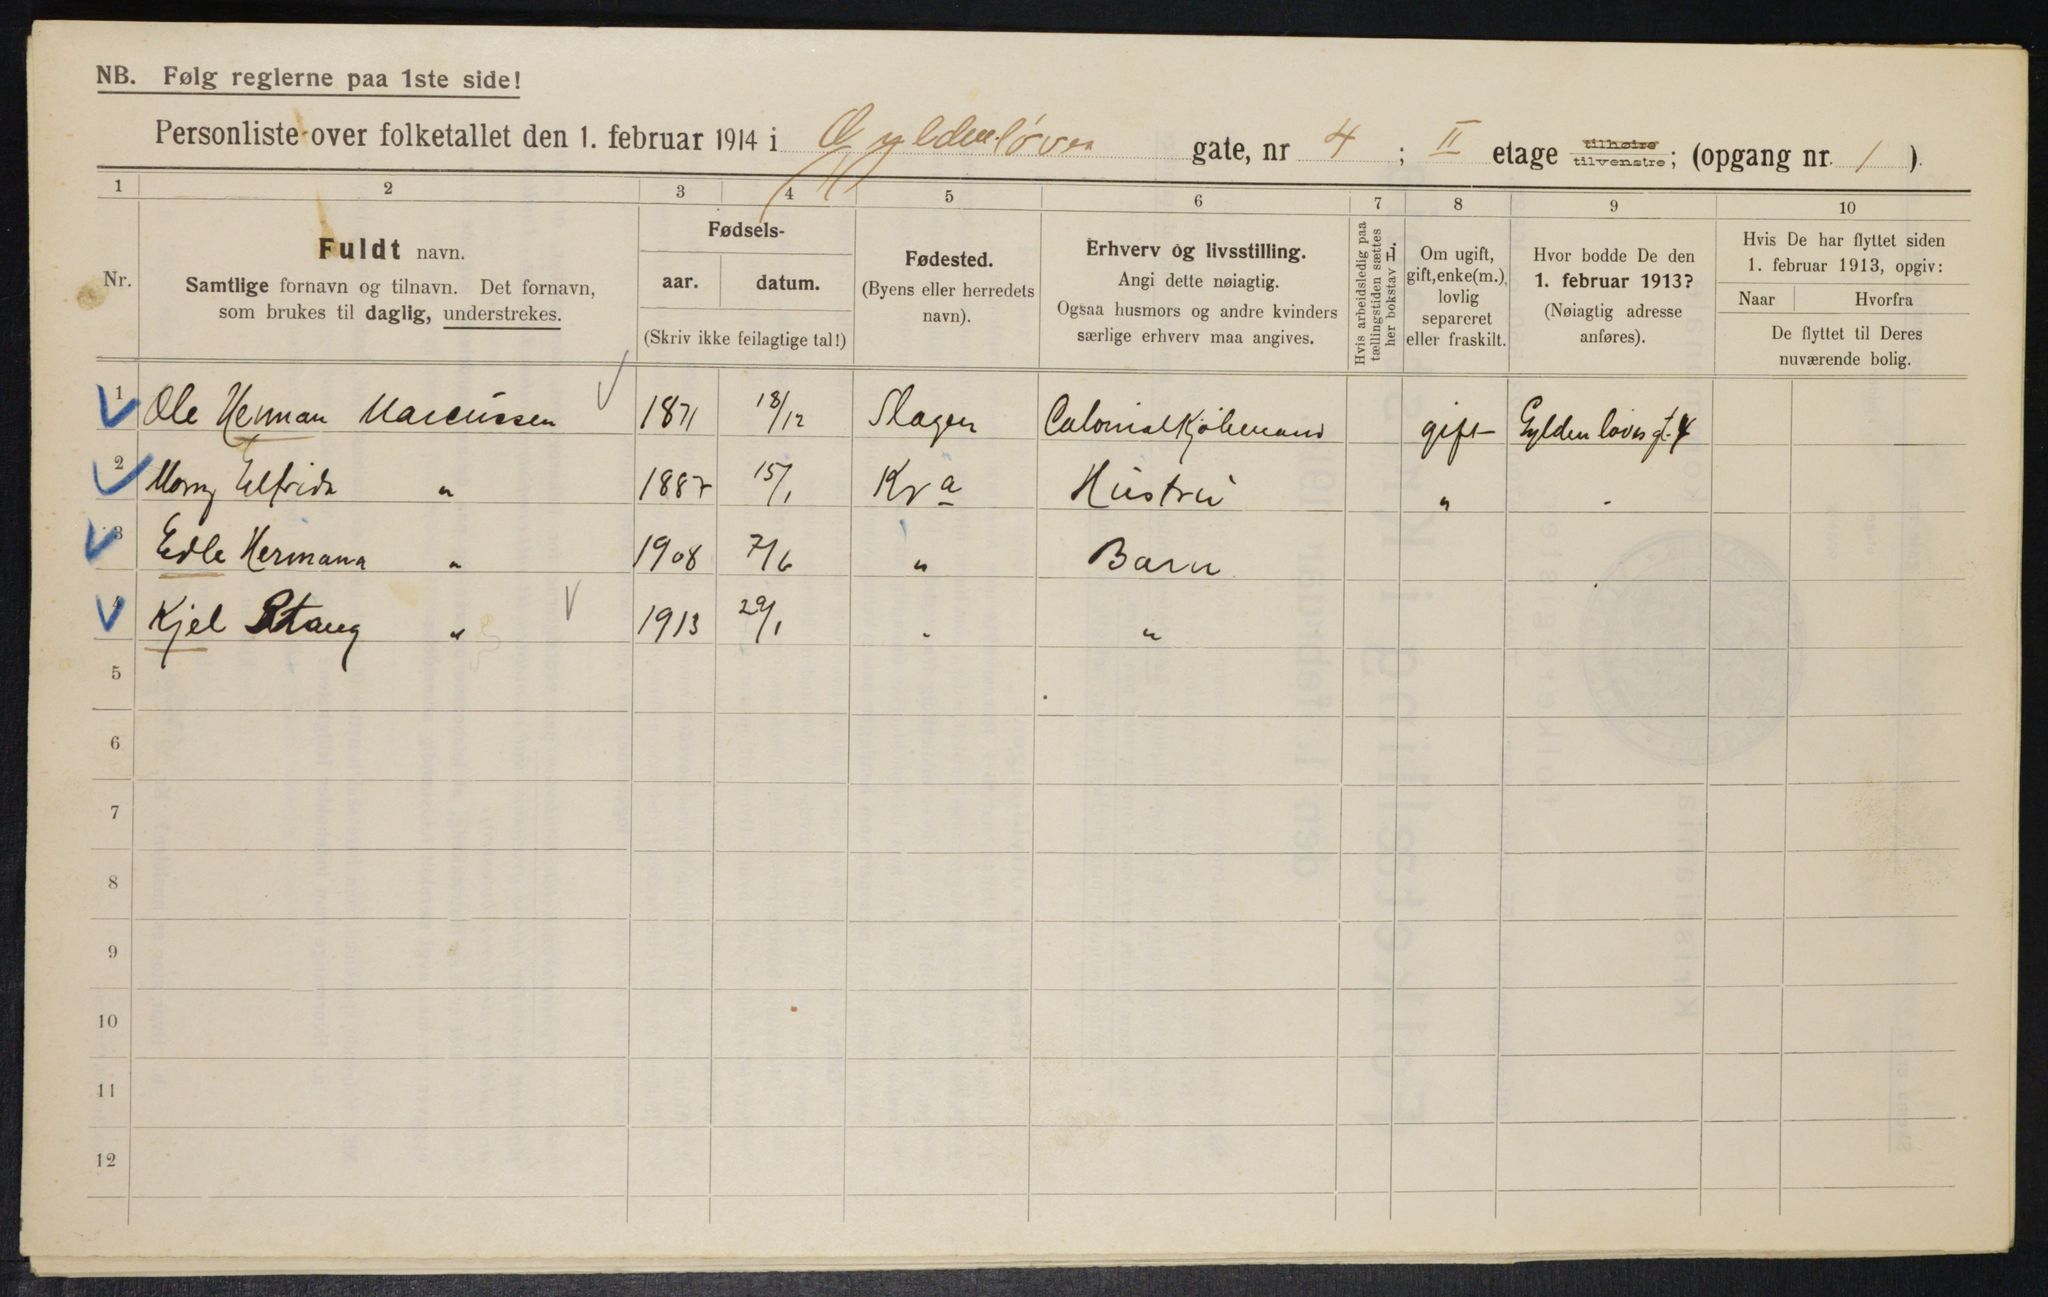 NB. Følg reglerne paa 1ste side!
Personliste over folketallet den 1. februar 1914 i Gyldenløves gate, nr 4 ; II etage tilhøire tilvenstre; (opgang nr. 1 ).
1 2 3 4 5 6 7 8 9 10
Nr.
Fuldt navn.
Samtlige fornavn og tilnavn. Det fornavn,
som brukes til daglig, understrekes.
Fødsels-
aar. datum.
(Skriv ikke feilagtige tal!)
Fødested.
(Byens eller herredets
navn).
Erhverv og livsstilling.
Angi dette nøiagtig.
Ogsaa husmors og andre kvinders
særlige erhverv maa angives.
Hvis arbeidsledig paa
tællingstiden sættes
her bokstav L.
Om ugift,
gift, enke(m.),
lovlig
separeret
eller fraskilt.
Hvor bodde De den
1. februar 1913?
(Nøiagtig adresse
anføres).
Hvis De har flyttet siden
1. februar 1913, opgiv:
Naar Hvorfra
De flyttet til Deres
nuværende bolig.
1 Ole Herman Marcussen 1871 18/12 Slagen Colonialkjøbmand gift Gyldenløves gt. 4
2 Elfrida " 1887 15/1 Kra Hustru " "
3 Edle Hermana " 1908 7/6 " Barn
4 Kjel Stang " 1913 29/1 " "
5
6
7
8
9
10
11
12